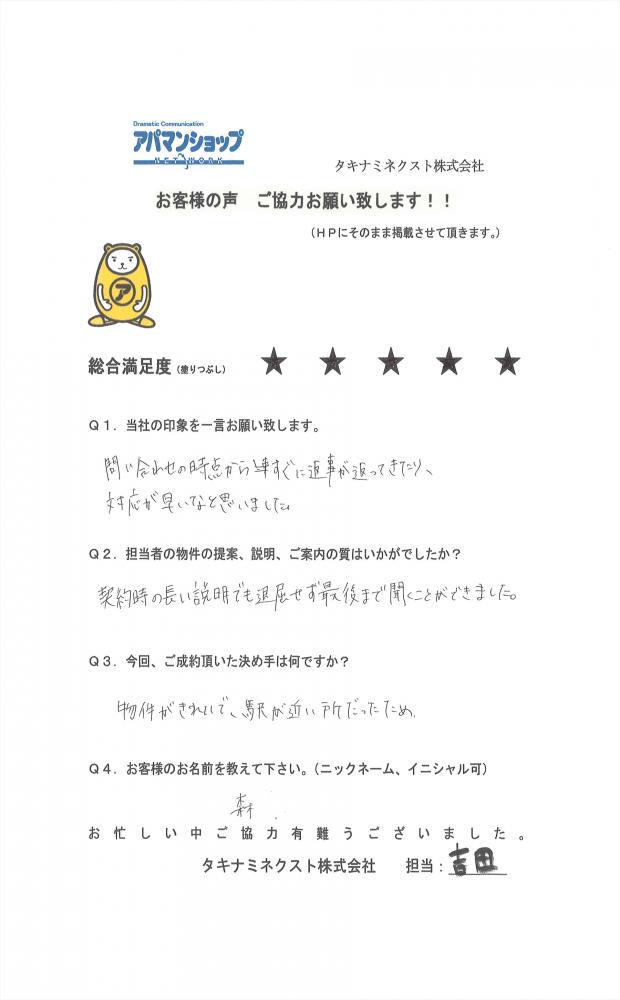 Dramatic Communication
アパマンショップ
NETWORK
タキナミネクスト株式会社
お客様の声　ご協力お願い致します！！
（ＨＰにそのまま掲載させて頂きます。）
ア
総合満足度（塗りつぶし） ★ ★ ★ ★ ★
Ｑ１．当社の印象を一言お願い致します。
問い合わせの時点からすぐに返事が返ってきたり、
対応が早いなと思いました。
Ｑ２．担当者の物件の提案、説明、ご案内の質はいかがでしたか？
契約時の長い説明でも退屈せず最後まで聞くことができました。
Ｑ３．今回、ご成約頂いた決め手は何ですか？
物件がきれいで、駅が近い所だったため.
Ｑ４．お客様のお名前を教えて下さい。（ニックネーム、イニシャル可）
森
お忙しい中ご協力有難うございました。
タキナミネクスト株式会社　担当：吉田